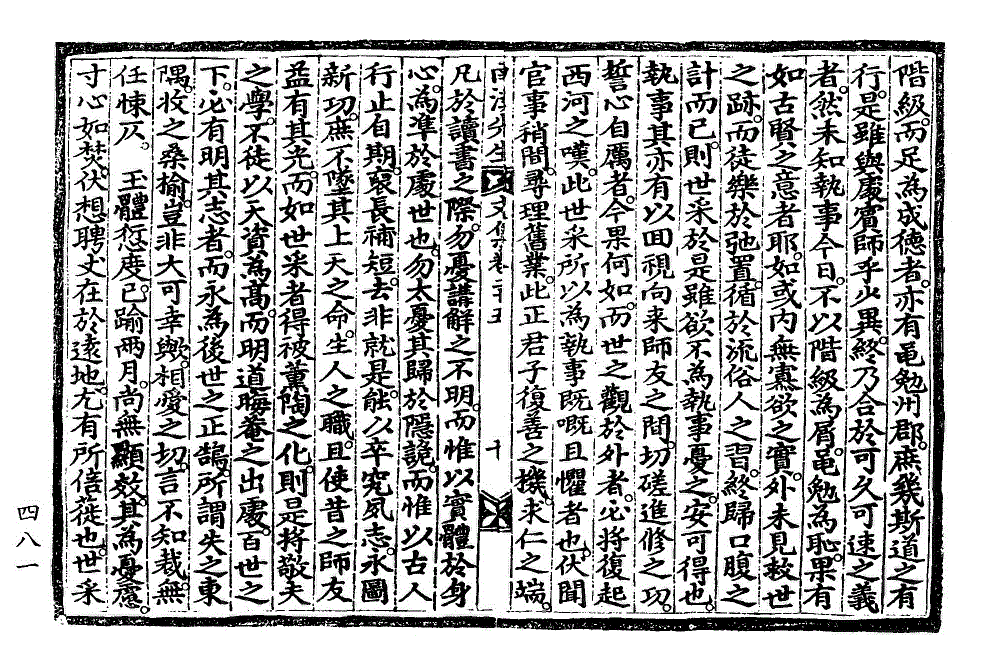 階級。而足為成德者。亦有黽勉州郡。庶幾斯道之有
行。是雖與處賓師乎少異。終乃合於可久可速之義
者。然未知執事今日。不以階級為屑。黽勉為恥。果有
如古賢之意者耶。如或內無憲欲之實。外未見救世
之跡。而徒樂於弛置。循於流俗人之習。終歸口腹之
計而已。則世采於是雖欲不為執事憂之。安可得也。
執事其亦有以回視向来師友之間。切磋進修之功。
誓心自厲者。今果何如。而世之觀於外者。必將復起
西河之嘆。此世采所以為執事旣嘅且懼者也。伏聞
官事稍閒。尋理舊業。此正君子復善之機。求仁之端。
文集卷二十五 十
凡於讀書之際。勿憂講解之不明。而惟以實體於身
心。為準於處世也。勿太憂其歸於隱詭。而惟以古人
行止自期。裒長補短。去非就是。能以卒究夙志。永圖
新功。庶不墜其上天之命。生人之職。且使昔之師友
益有其光。而如世采者得被薰陶之化。則是將敬夫
之學。不徒以天資為高。而明道晦菴之出處。百世之
下。必有明其志者。而永為後世之正鵠。所謂失之東
隅。收之桑榆。豈非大可幸歟。相愛之切。言不知裁。無
任悚仄。 玉體愆度。已踰兩月。尚無顯效。其為憂慮。
寸心如焚。伏想聘丈在於遠地。尤有所倍蓰也。世采
四八一